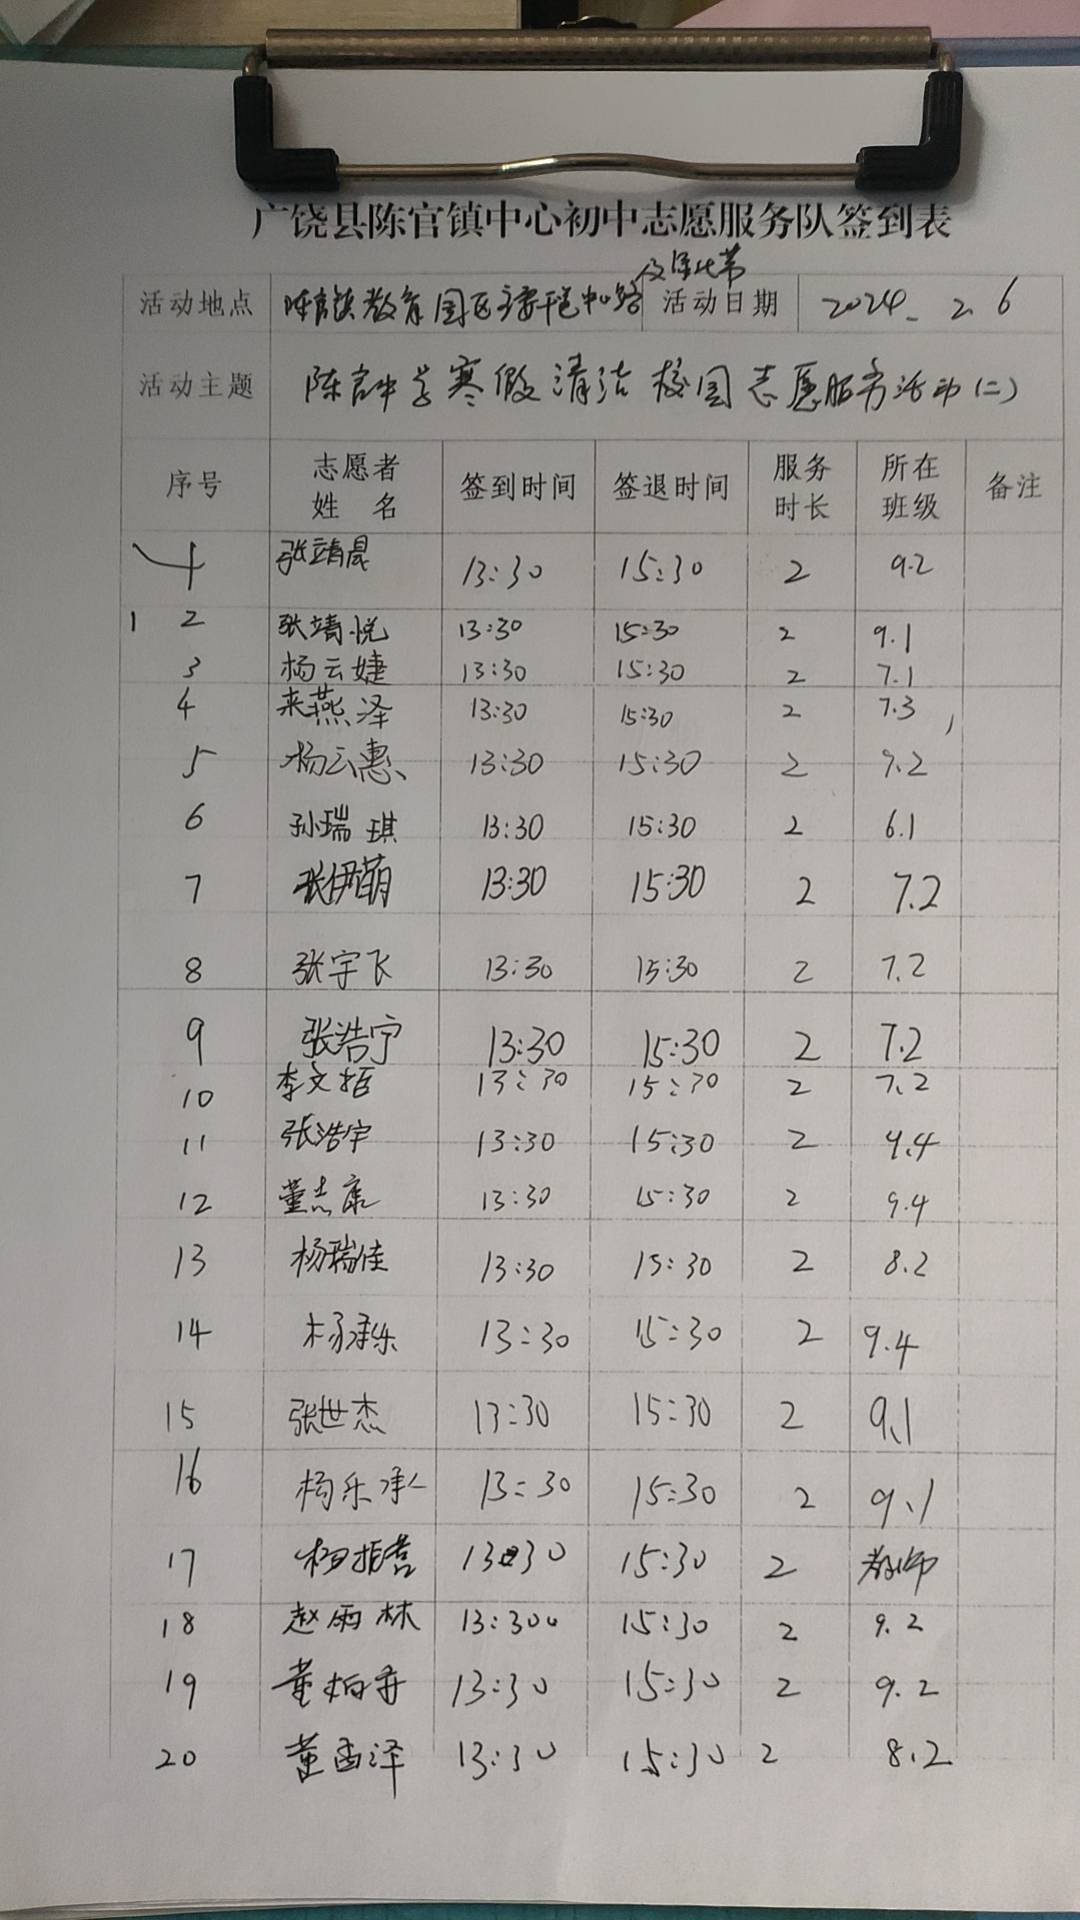 广饶县陈官镇中心初中志愿服务队签到表
及绿化带
活动地点 陈官镇教育园区主要干道中心路 活动日期 2024.2.6
活动主题 陈官中学寒假清洁校园志愿服务活动(二)
序号 志愿者姓名 签到时间 签退时间 服务时长 所在班级 备注
1 张靖晨 13:30 15:30 2 9.2
1 2 张靖悦 13:30 15:30 2 9.1
3 杨云婕 13:30 15:30 2 7.1
4 来燕泽 13:30 15:30 2 7.3
5 杨云惠 13:30 15:30 2 9.2
6 孙瑞琪 13:30 15:30 2 6.1
7 张伊萌 13:30 15:30 2 7.2
8 张宇飞 13:30 15:30 2 7.2
9 张浩宁 13:30 15:30 2 7.2
10 李文 13:30 15:30 2 7.2
11 张浩宇 13:30 15:30 2 9.4
12 董志康 13:30 15:30 2 9.4
13 杨瑞佳 13:30 15:30 2 8.2
14 杨承乐 13:30 15:30 2 9.4
15 张世杰 13:30 15:30 2 9.1
16 杨乐承 13:30 15:30 2 9.1
17 杨 13:30 15:30 2 教师
18 赵雨林 13:30 15:30 2 9.2
19 董 13:30 15:30 2 9.2
20 董西泽 13:30 15:30 2 8.2